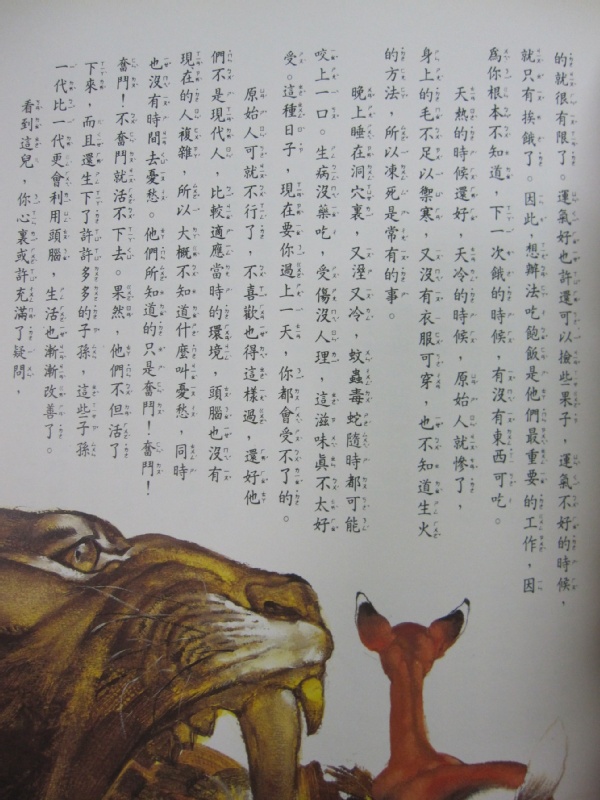 的就很有限了。運氣好也許還可以撿些果子，運氣不好的時候，
就只有挨餓了。因此，想辦法吃飽飯是他們最重要的工作，因
為你根本不知道，下一次餓的時候，有沒有東西可吃。
天熱的時候還好，天冷的時候，原始人就慘了，
身上的毛不足以禦寒，又沒有衣服可穿，也不知道生火
的方法，所以凍死是常有的事。
晚上睡在洞穴裏，又溼又冷，蚊蟲毒蛇隨時都可能
咬上一口。生病沒藥吃，受傷沒人理，這滋味真不太好
受。這種日子，現在要你過上一天，你都會受不了的。
原始人可就不行了，不喜歡也得這樣過，還好他
們不是現代人，比較適應當時的環境，頭腦也沒有
現在的人複雜，所以大概不知道什麼叫憂愁，同時
也沒有時間去憂愁。他們所知道的只是奮鬥！奮鬥！
奮鬥！不奮鬥就活不下去。果然，他們不但活了
下來，而且還生下了許許多多的子孫，這些子孫
一代比一代更會利用頭腦，生活也漸漸改善了。
看到這兒，你心裏或許充滿了疑問，